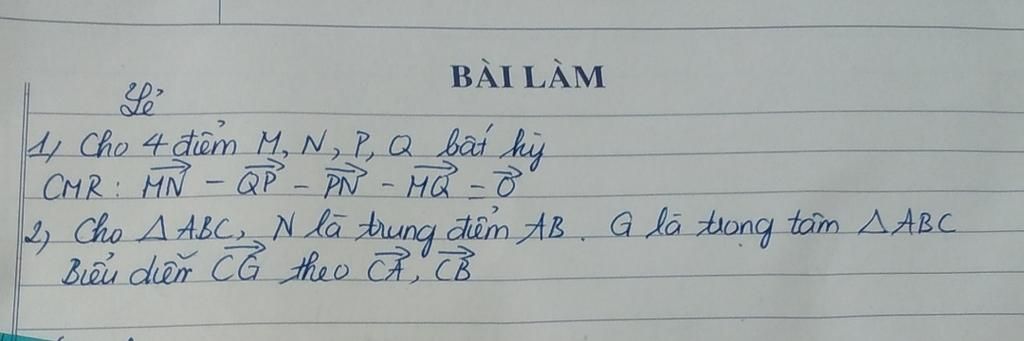 BÀI LÀM
Lẻ
1) Cho 4 điểm M, N, P, Q bất kỳ
CMR: \overrightarrow{MN} - \overrightarrow{QP} - \overrightarrow{PN} - \overrightarrow{MQ} = \overrightarrow{0}
2) Cho △ABC, N là trung điểm AB. G là trọng tâm △ABC
Biểu diễn \overrightarrow{CG} theo \overrightarrow{CA}, \overrightarrow{CB}